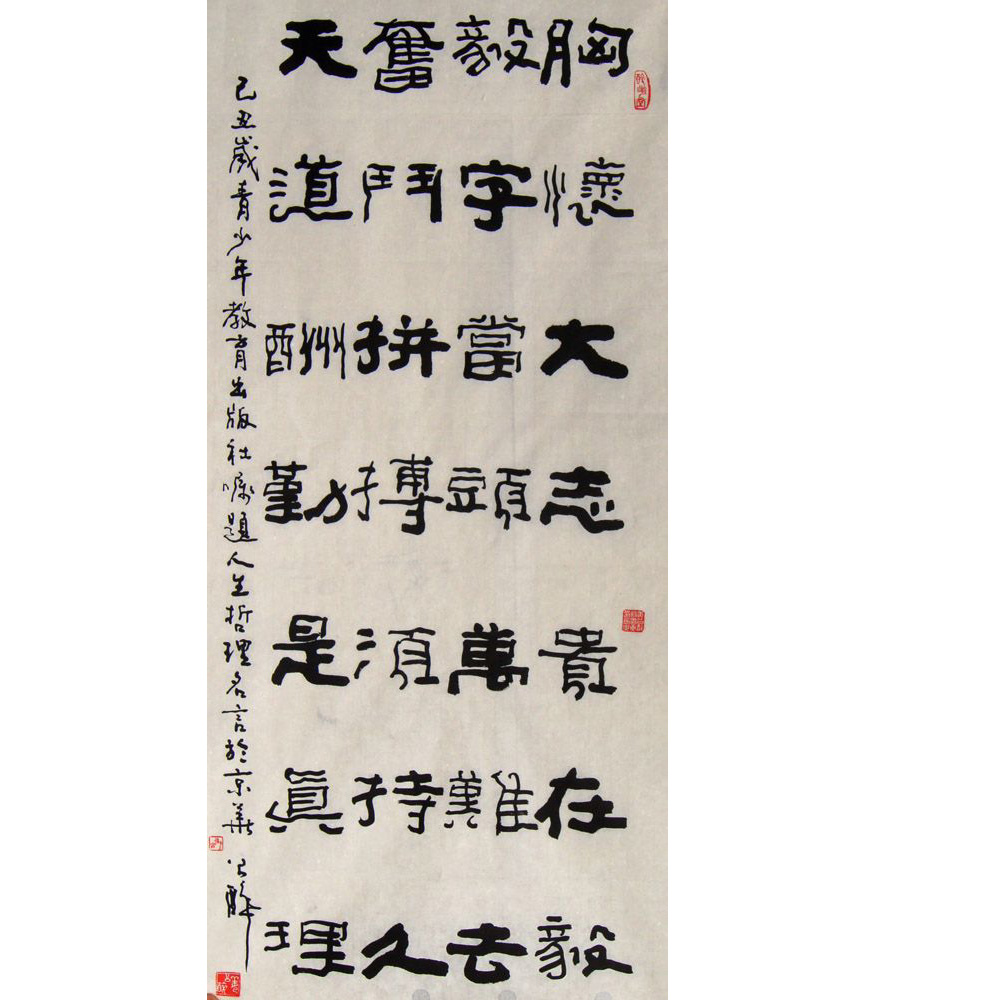 胸懷大志貴在毅
毅字當頭萬難去
奮鬥拼搏須持久
天道酬勤是真理
己丑歲青少年教育出版社囑題人生哲理名言於京華